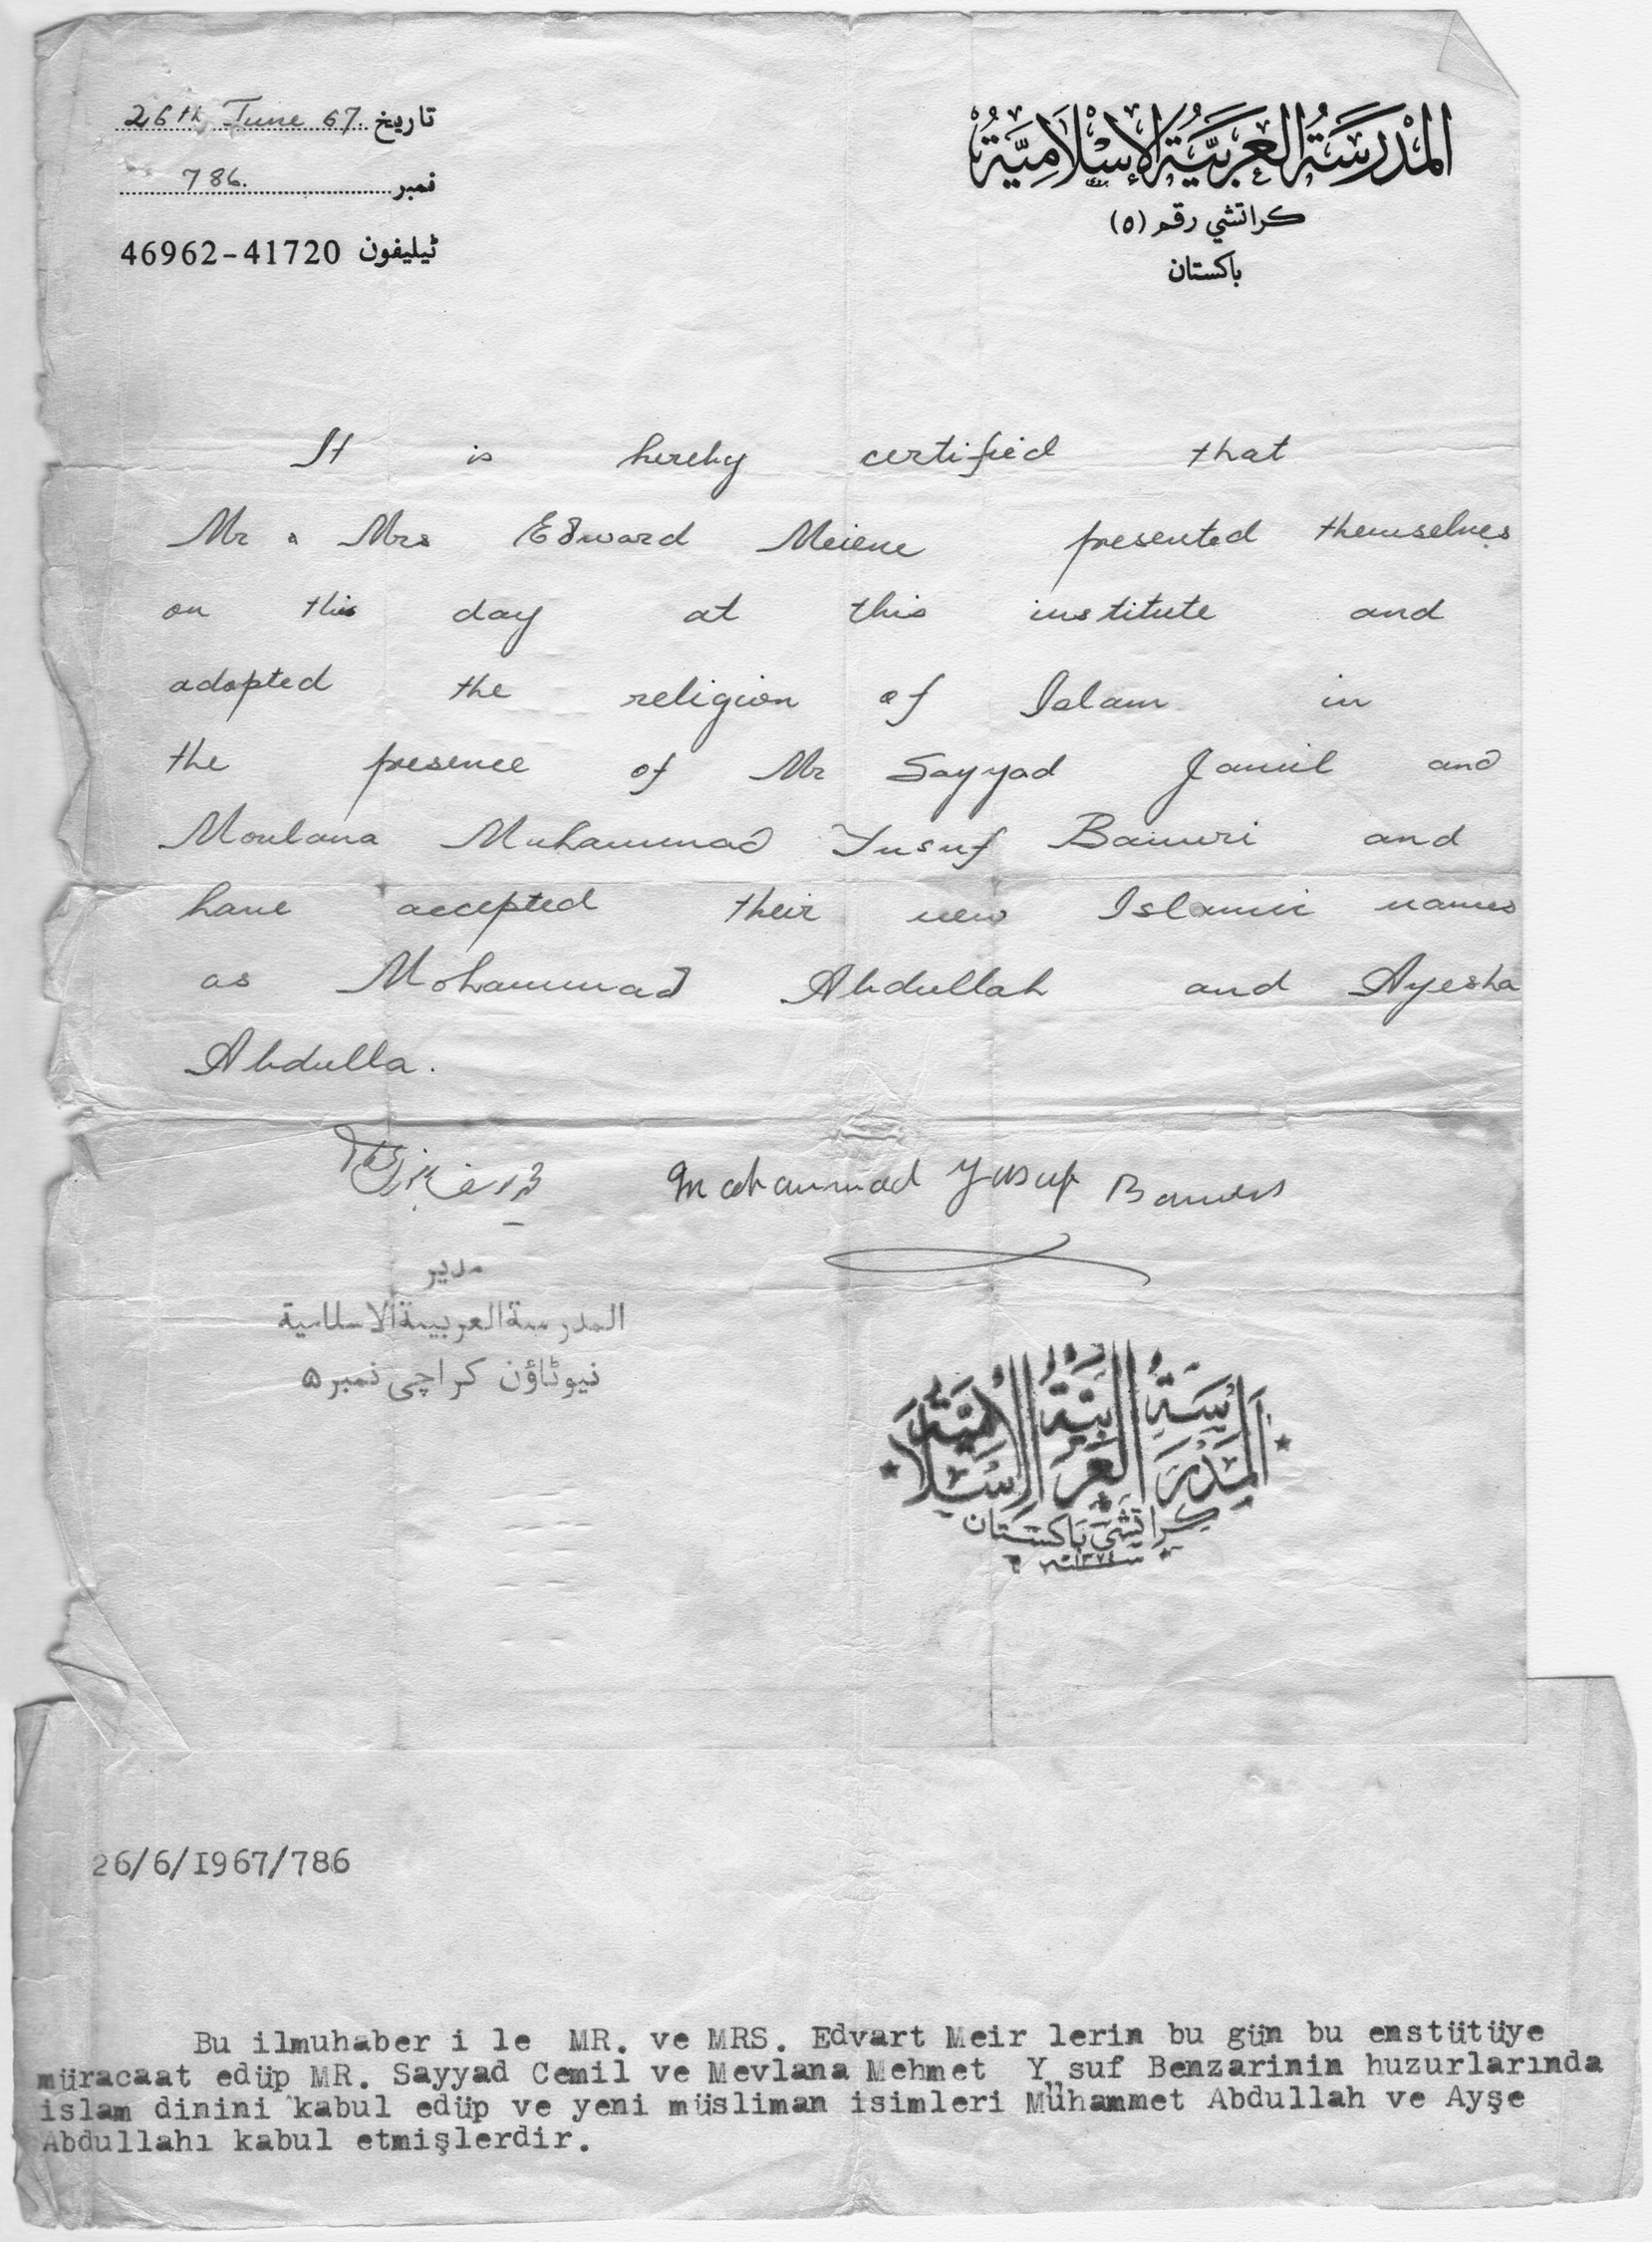 26th June 67. تاريخ
786. نمبر
46962-41720 ٹیلیفون
المَدْرَسَةُ العَرَبيَّةُ الإِسْلَامِيَّةُ
كراتشي رقم (٥)
باكستان
It is hereby certified that
Mr & Mrs Edward Meiene presented themselves
on this day at this institute and
adopted the religion of Islam in
the presence of Mr Sayyad Jamil and
Moulana Muhammad Yusuf Banuri and
have accepted their new Islamic names
as Mohammad Abdullah and Ayesha
Abdulla.
Mohammad Yusuf
مدير
المدرسة العربية الاسلامية
نیوٹاؤن کراچی نمبر ۵
المَدْرَسَةُ العَرَبِيَّةُ الإِسْلَامِيَّةُ
كراتشي باكستان
26/6/I967/786
Bu ilmuhaber i le MR. ve MRS. Edvart Meir lerin bu gün bu enstütüye
müracaat edüp MR. Sayyad Cemil ve Mevlana Mehmet Y suf Benzarinin huzurlarında
islam dinini kabul edüp ve yeni müsliman isimleri Mühammet Abdullah ve Ayşe
Abdullahı kabul etmişlerdir.